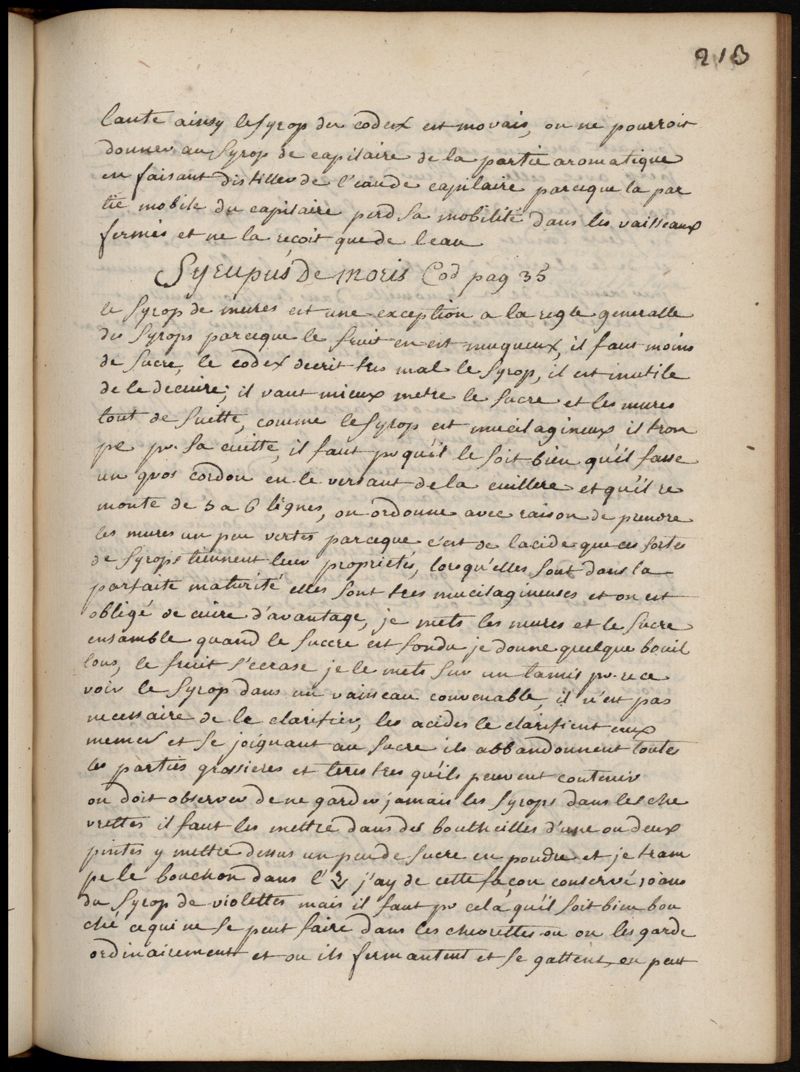 213
lante ainsy le syrop du codex est movais, on ne pourroit
donner au syrop de capilaire de la partie aromatique
en faisant distiller de l'eau de capilaire parceque la par
tie mobile du capilaire perd sa mobilité dans les vaisseaux
fermés et ne la reçoit que de l'eau
Syrupus de moris Cod pag 35
le syrop de mures est une exception a la regle generalle
des syrops parceque le fruit en est muqueux, il faut moins
de sucre, le codex decrit tres mal le syrop, il est inutile
de le decuire; il vaut mieux metre le sucre et les mures
tout de suitte, comme le syrop est mucilagineux il trom
pe pr. sa cuitte, il faut pr qu'il le soit bien qu'il fasse
un gros cordon en le versant de la cuillere et qu'il re
monte de 5 a 6 lignes, on ordonne avec raison de prendre
les mures un peu vertes parceque c'est de lacide que ces sortes
de syrops tiennent leur proprietés, lorsqu'elles sont dans la
parfaite maturité elles sont tres mucilagineuses et on est
obligé de cuire d'avantage, je mets les mures et le sucre
ensamble quand le succre est fondu je donne quelque bouil
lons, le fruit s'ecrase je le mets sur un tamis pr rece
voir le syrop dans un vaisseau convenable, il n'est pas
necessaire de le clarifier, les acides le clarifient eux
memes et se joignant au sucre ils abbandonnent toutes
les parties grossieres et terestres qu'ils peuvent contenir
on doit observer de ne garder jamais les syrops dans les che
vrettes il faut les mettre dans des boutheilles d'une ou deux
pintes y mettre dessus un peu de sucre en poudre et je tram
pe le bouchon dans l' j'ay de cette façon conservé 10 ans
du syrop de violettes mais il faut pr cela qu'il soit bien bou
ché cequi ne se peut faire dans les chevrettes ou on les garde
ordinairement et ou ils fermantent et se gattent, on peut